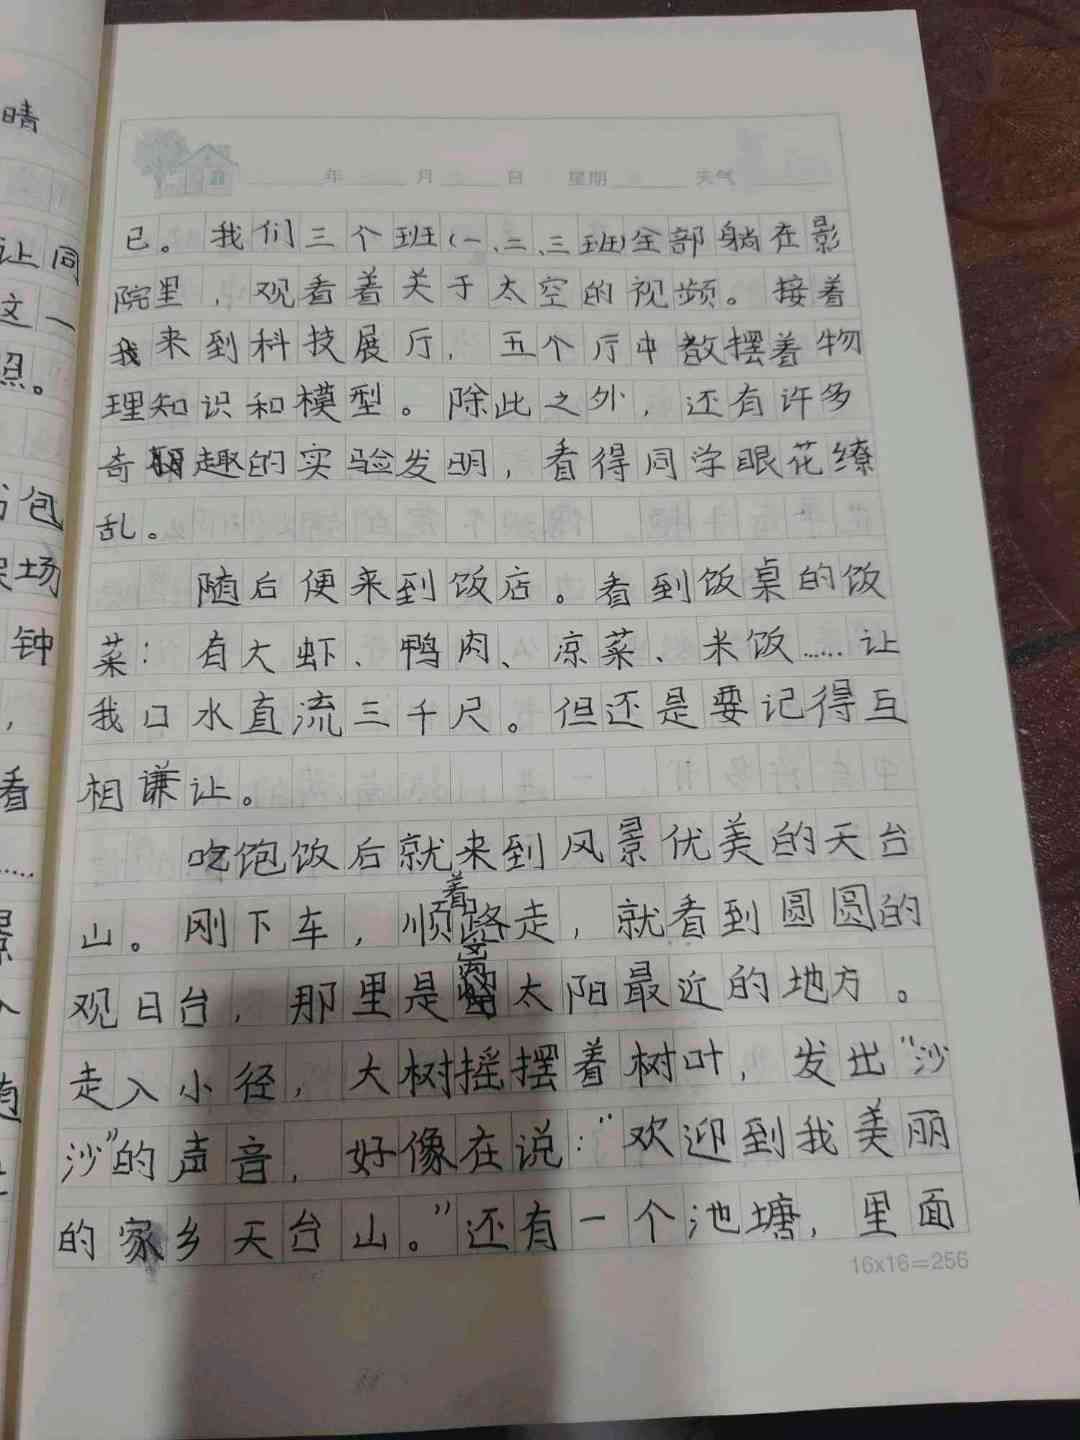 晴
让同
这一
照。
包
场
钟
，
看
……
年 月 日 星期 天气
已。我们三个班(一、二、三班)全部躺在影
院里，观看着关于太空的视频。接着
我来到科技展厅，五个厅中都摆着物
理知识和模型。除此之外，还有许多
奇趣的实验发明，看得同学眼花缭
乱。
随后便来到饭店。看到饭桌的饭
菜：有大虾、鸭肉、凉菜、米饭……让
我口水直流三千尺。但还是要记得互
相谦让。
吃饱饭后就来到风景优美的天台
山。刚下车，顺着路走，就看到圆圆的
观日台，那里是离太阳最近的地方。
走入小径，大树摇摆着树叶，发出“沙
沙”的声音，好像在说：“欢迎到我美丽
的家乡天台山。”还有一个池塘，里面
16x16=256